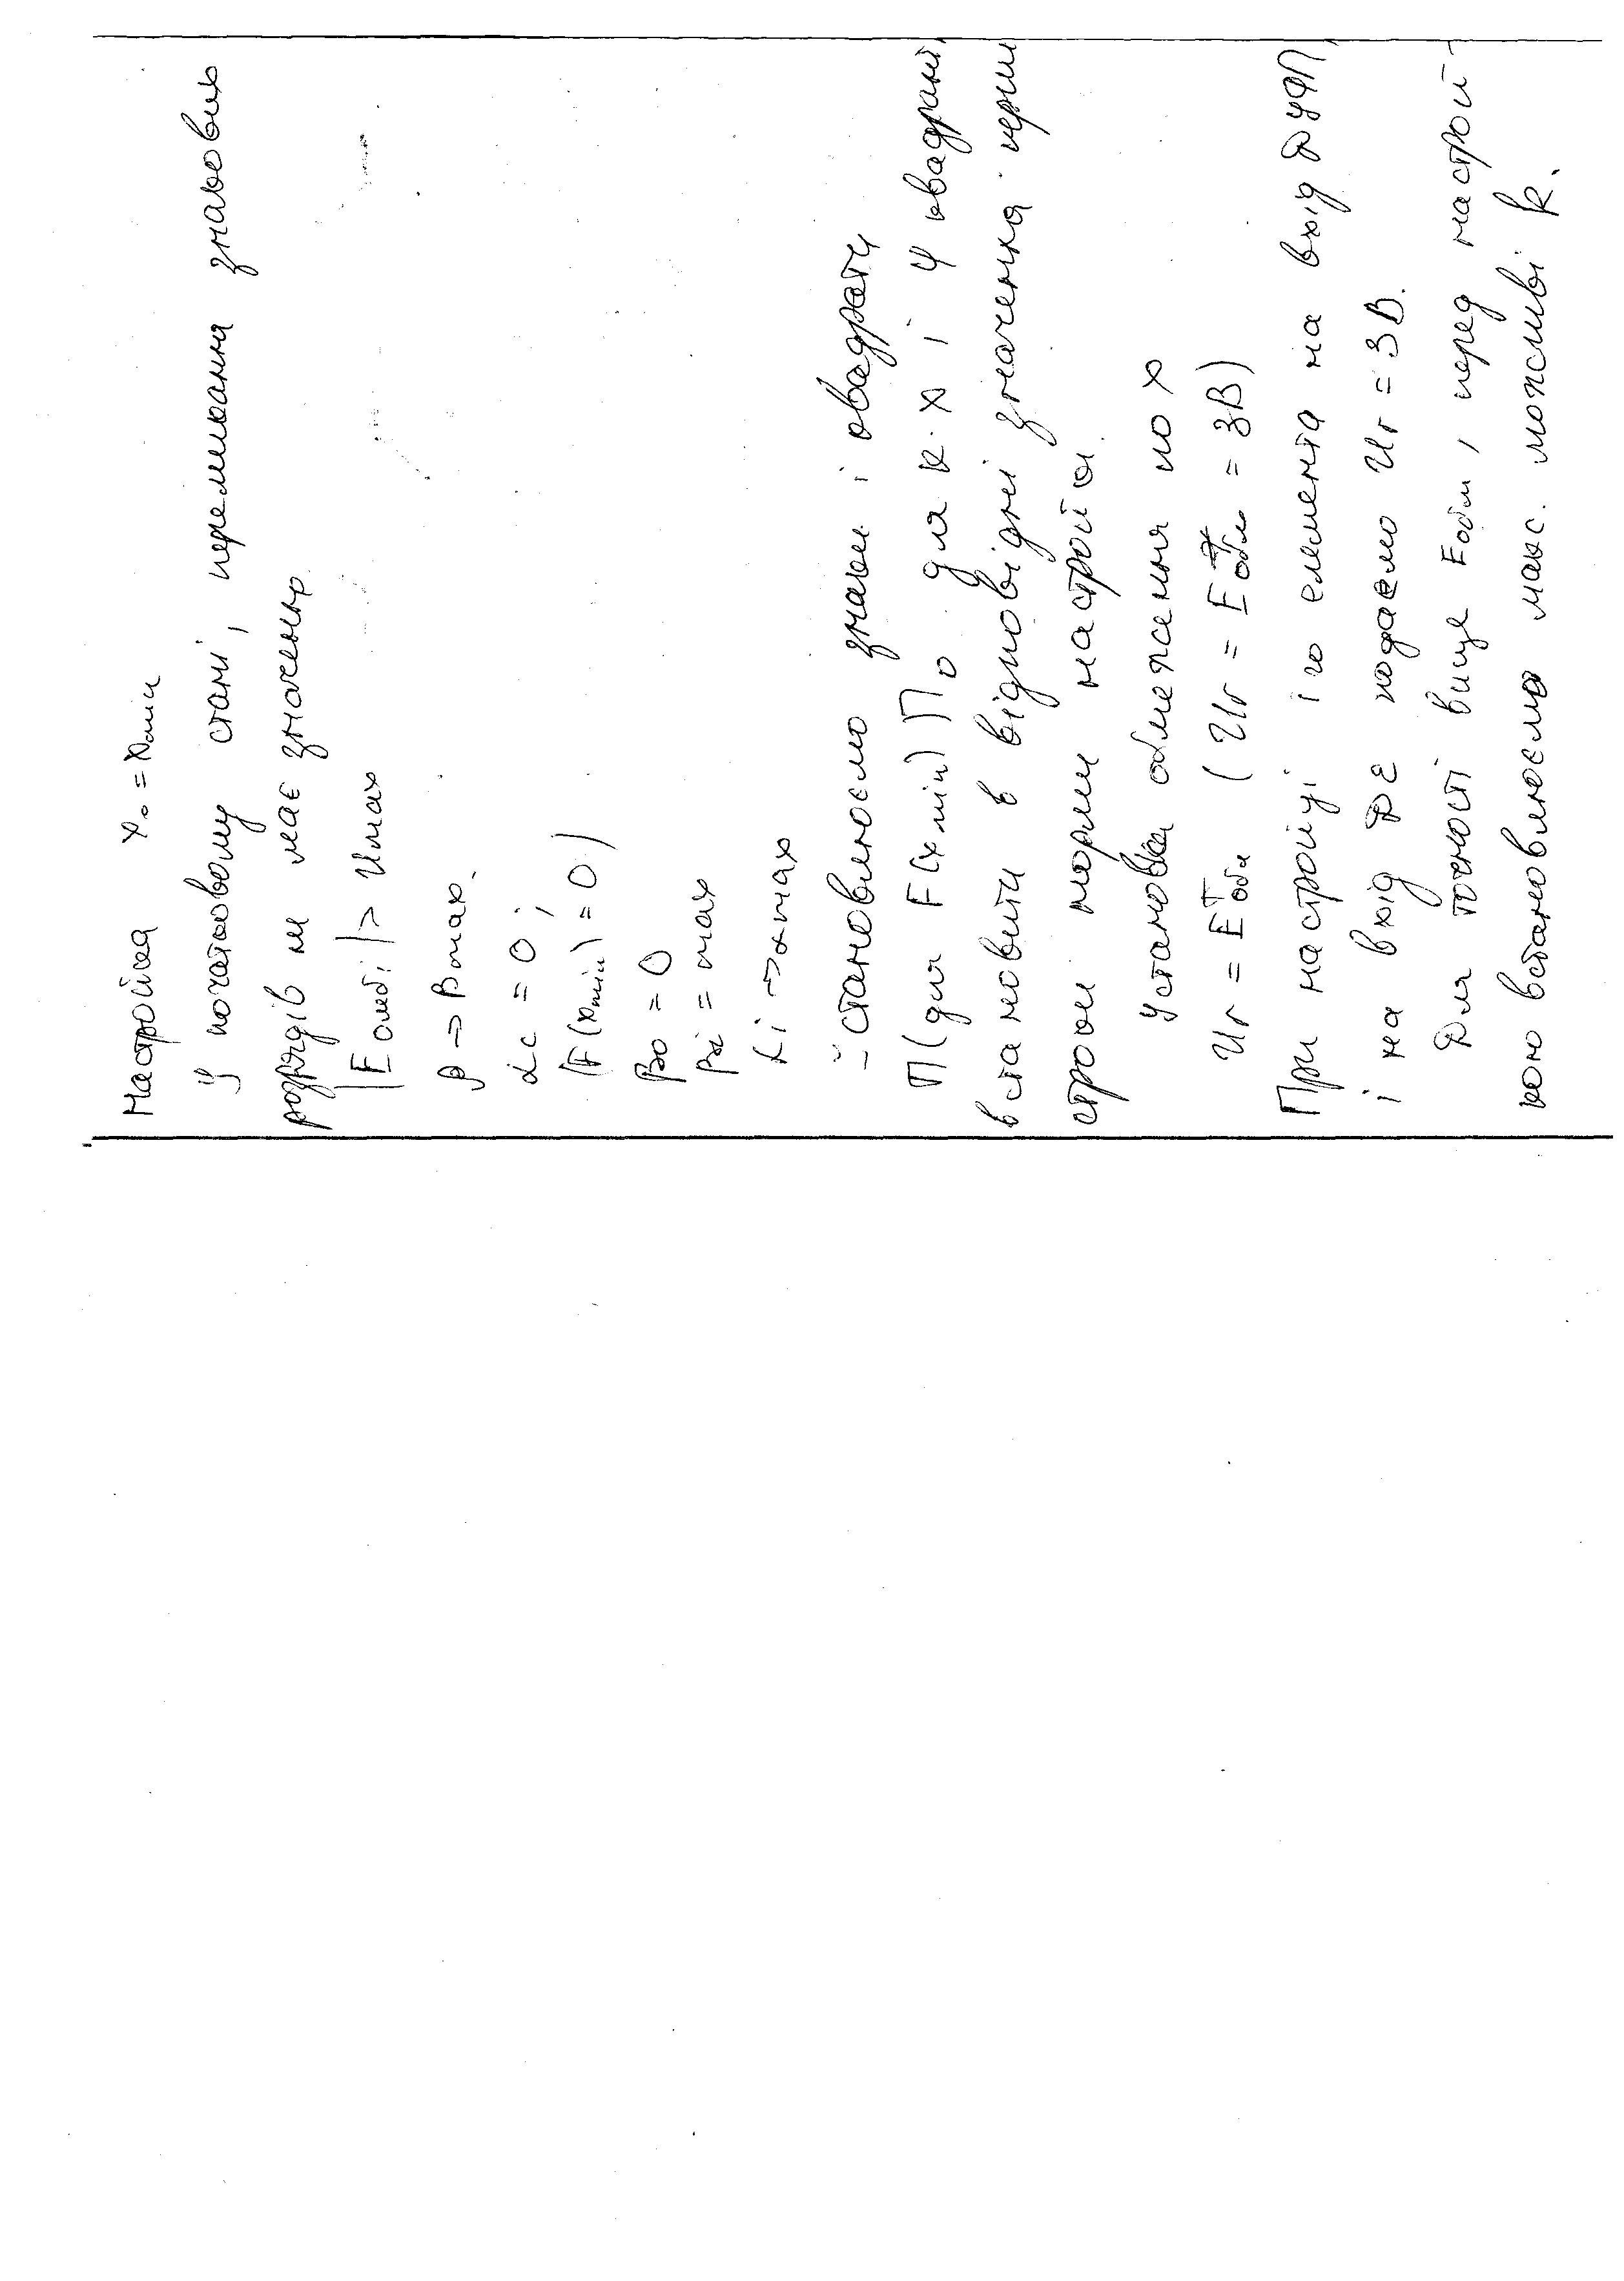 Настройка x₀ = xmin
У початковому стані, перемикання знакових
розрядів не має значення.
|Eомбі| > Umax
β → βmax.
αc = 0 ;
(F(xmin) = 0)
β0 = 0
βi = max
αi → αmax
становлюємо знаки і квадрати
П(для F(xmin) П0 для к. x і 4 квадрант,
встановити в відповідні значення перш
строки норми настройки.
Установка обмеження по x
Uг = Eобм (Uг = Eобм = 3В)
При настройці і го елемента на вхід ДУФП,
і на вхід ДЕ подаємо Uг = 3В.
Для точності вище Eобм, перед настрой-
кою встановлюємо макс. можливі k.